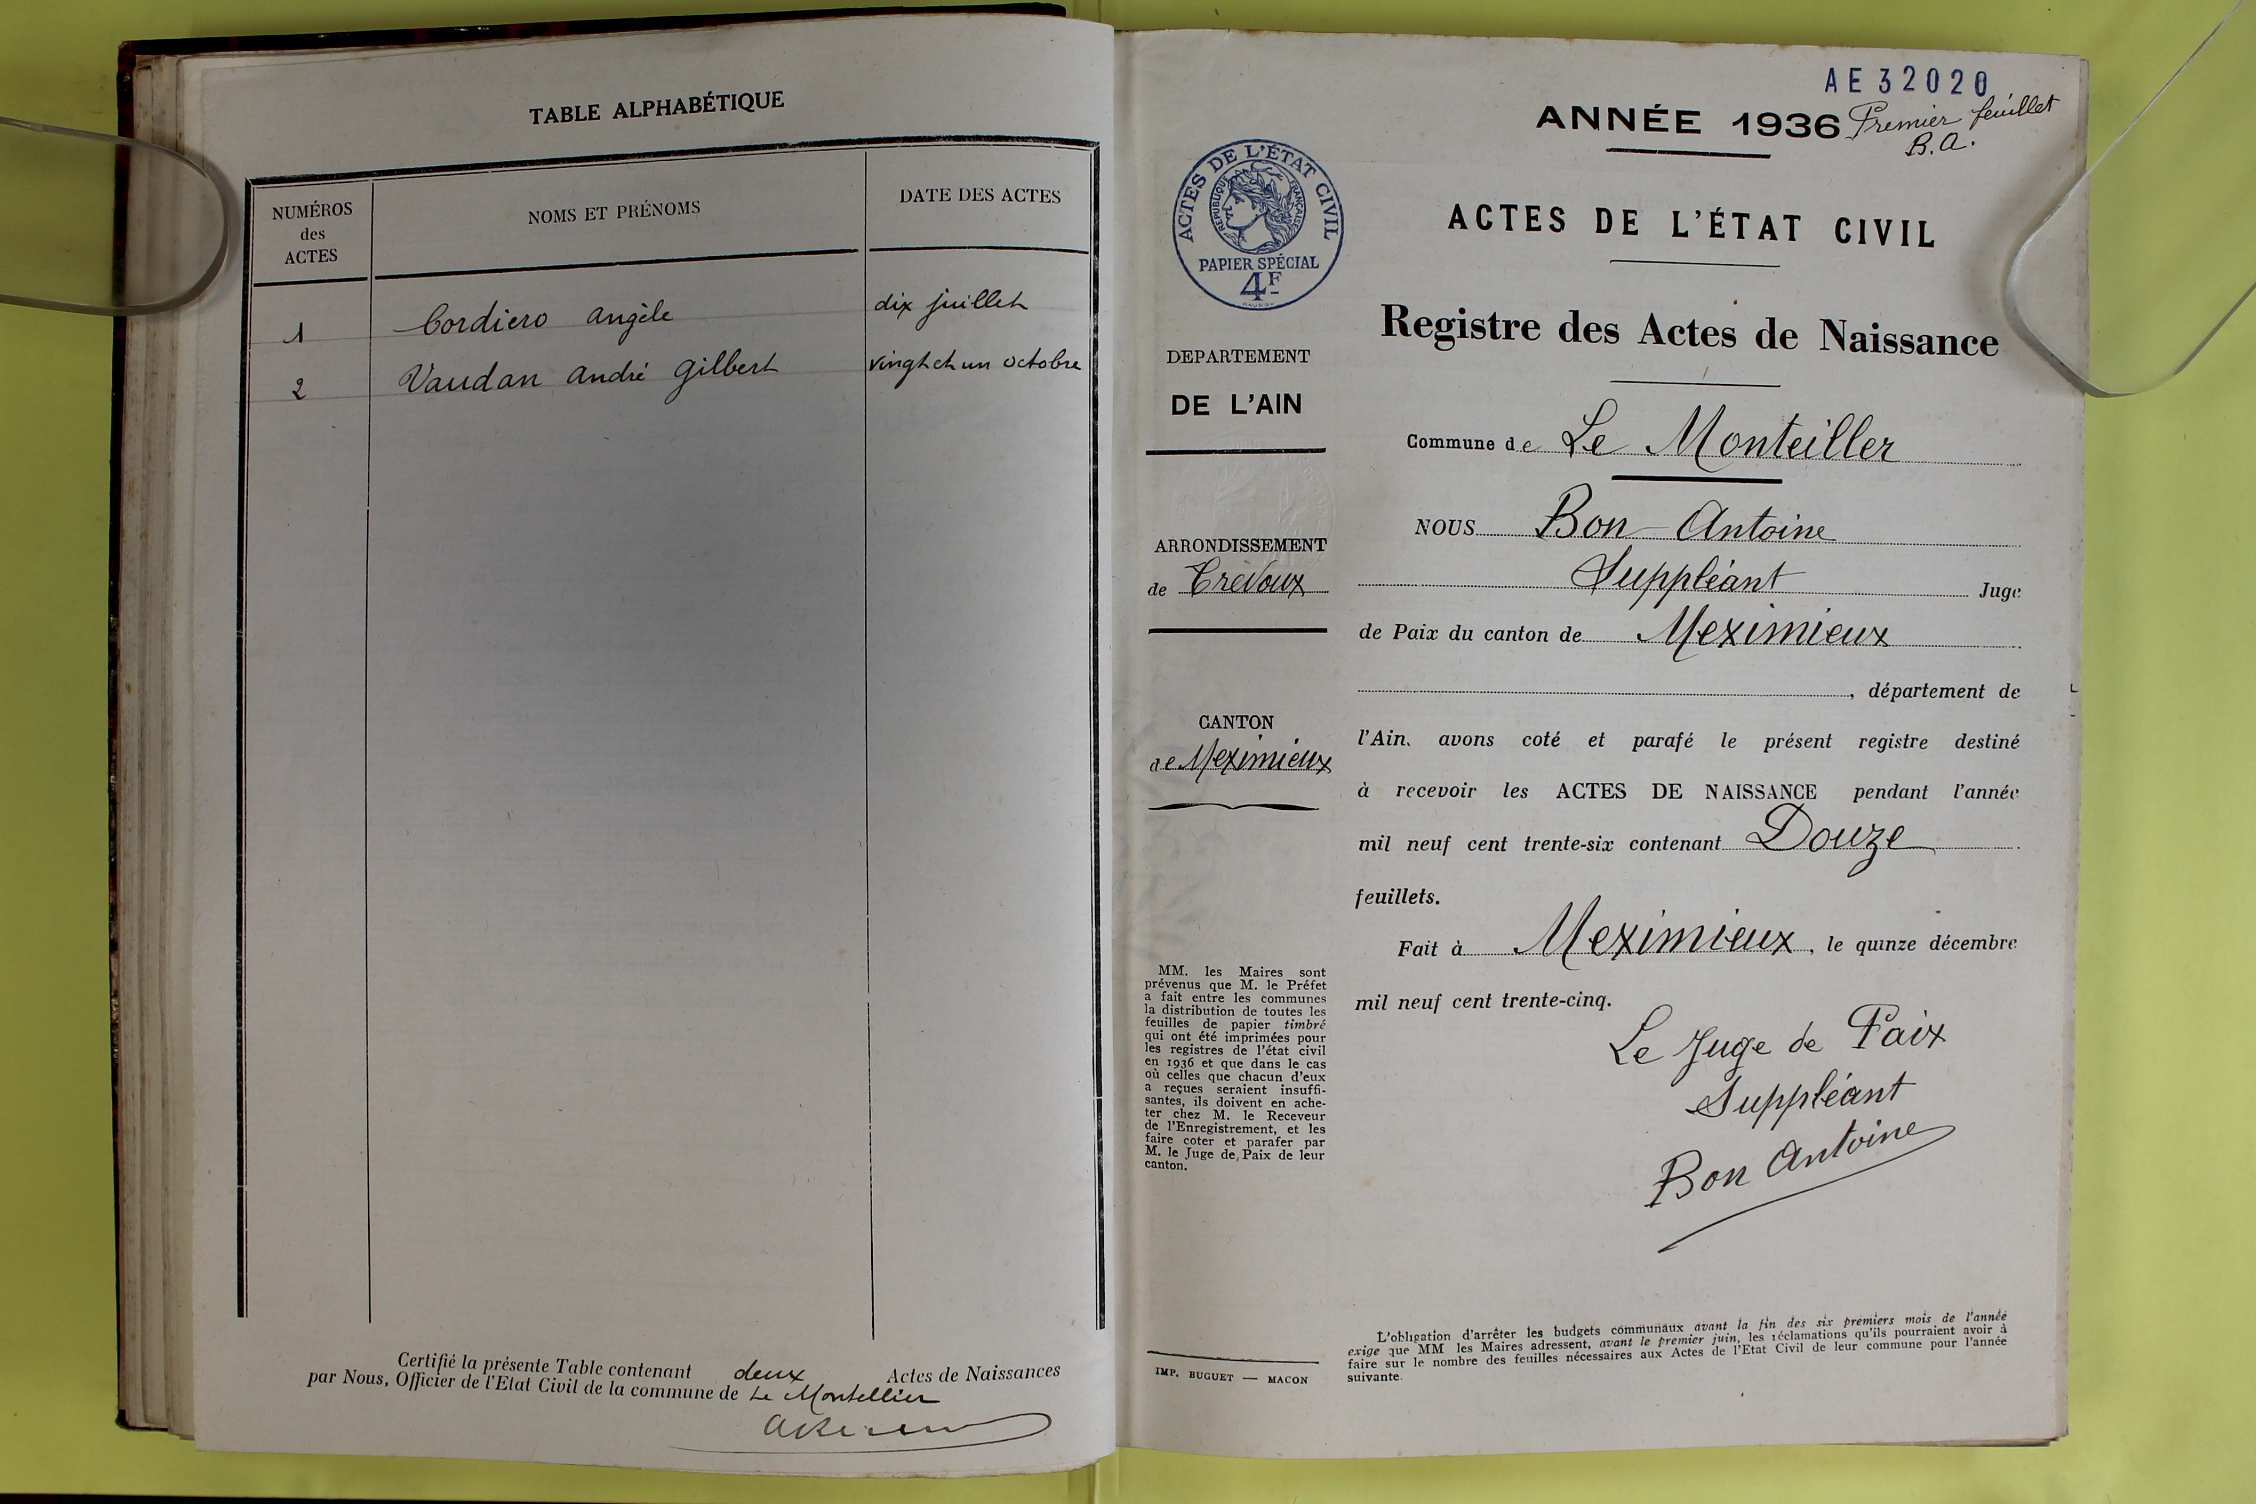 TABLE ALPHABÉTIQUE
NUMÉROS
des
ACTES
NOMS ET PRÉNOMS
DATE DES ACTES
1 Cordiero Angèle dix juillet
2 Vaudan André Gilbert vingt et un octobre
Certifié la présente Table contenant deux Actes de Naissances
par Nous, Officier de l'Etat Civil de la commune de Le Montellier
AE 32020
ANNÉE 1936 Premier feuillet
B.A.
ACTES DE L'ÉTAT CIVIL
RÉPUBLIQUE FRANÇAISE
PAPIER SPÉCIAL
4F
DEPARTEMENT
DE L'AIN
ARRONDISSEMENT
de Trévoux
CANTON
de Meximieux
MM. les Maires sont
prévenus que M. le Préfet
a fait entre les communes
la distribution de toutes les
feuilles de papier timbré
qui ont été imprimées pour
les registres de l'état civil
en 1936 et que dans le cas
où celles que chacun d'eux
a reçues seraient insuffi-
santes, ils doivent en ache-
ter chez M. le Receveur
de l'Enregistrement, et les
faire coter et parafer par
M. le Juge de Paix de leur
canton.
IMP. BUGUET — MACON
ACTES DE L'ÉTAT CIVIL
Registre des Actes de Naissance
Commune de Le Monteiller
NOUS Bon Antoine
Suppléant Juge
de Paix du canton de Meximieux
, département de
l'Ain, avons coté et parafé le présent registre destiné
à recevoir les ACTES DE NAISSANCE pendant l'année
mil neuf cent trente-six contenant Douze
feuillets.
Fait à Meximieux, le quinze décembre
mil neuf cent trente-cinq.
Le Juge de Paix
Suppléant
Bon Antoine
L'obligation d'arrêter les budgets communaux avant la fin des six premiers mois de l'année
exige que MM les Maires adressent, avant le premier juin, les réclamations qu'ils pourraient avoir à
faire sur le nombre des feuilles nécessaires aux Actes de l'Etat Civil de leur commune pour l'année
suivante.